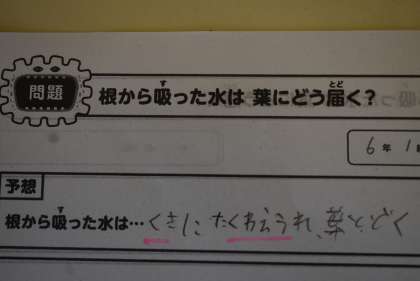 問題
根から吸った水は 葉にどう届く?
す
とど
6年 1
予想
す
根から吸った水は…くきにたくわえられ、葉にとどく